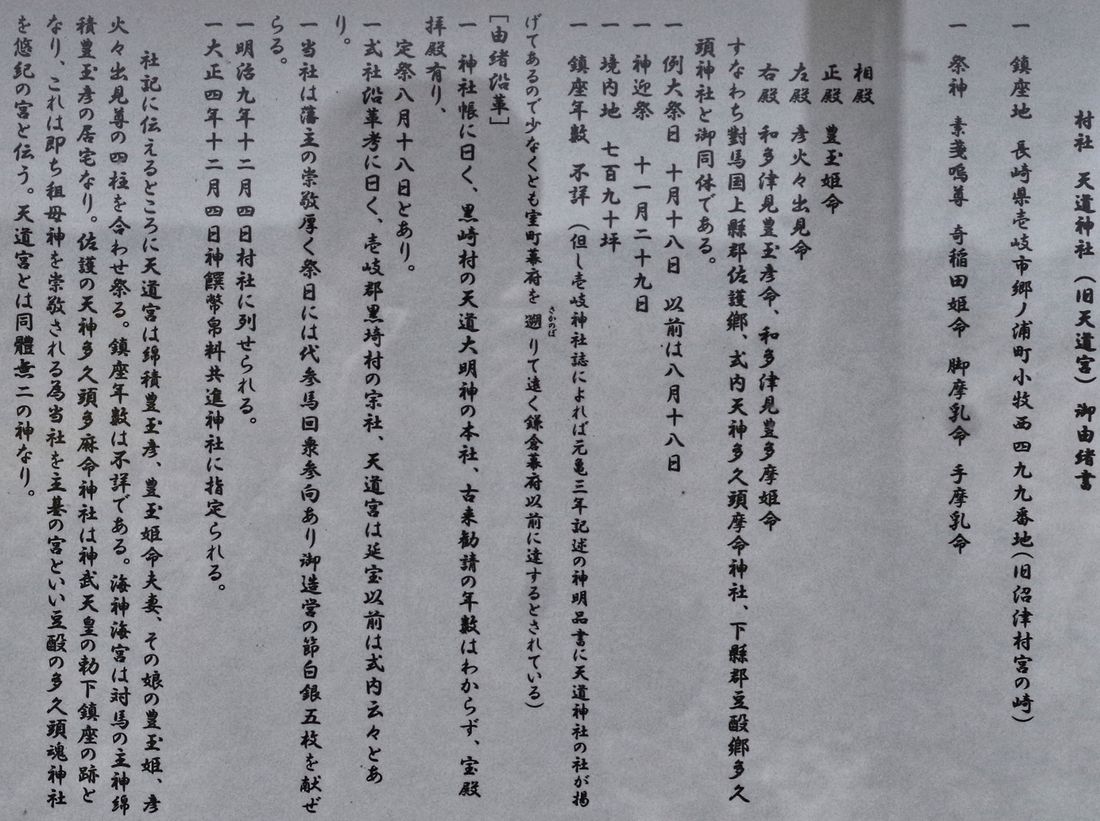 村社　天道神社（旧天道宮）　御由緒書
一　鎮座地　長崎県壱岐市郷ノ浦町小牧西四九九番地（旧沼津村宮の崎）
一　祭神　素戔嗚尊　奇稲田姫命　脚摩乳命　手摩乳命
相殿
正殿　豊玉姫命
左殿　彦火々出見命
右殿　和多津見豊玉彦命、和多津見豊多摩姫命
すなわち對馬国上縣郡佐護郷、式内天神多久頭摩命神社、下縣郡豆酘郷多久
頭神社と御同体である。
一　例大祭日　十月十八日　以前は八月十八日
一　神迎祭　十一月二十九日
一　境内地　七百九十坪
一　鎮座年数　不詳（但し壱岐神社誌によれば元亀三年記述の神明品書に天道神社の社が掲
げてあるので少なくとも室町幕府を遡りて遠く鎌倉幕府以前に達するとされている）
さかのぼ
［由緒沿革］
一　神社帳に曰く、黒崎村の天道大明神の本社、古来勧請の年数はわからず、宝殿
拝殿有り、
定祭八月十八日とあり。
一　式社沿革考に曰く、壱岐郡黒埼村の宗社、天道宮は延宝以前は式内云々とあ
り。
一　当社は藩主の崇敬厚く祭日には代参馬回衆参向あり御造営の節白銀五枚を献ぜ
らる。
一明治九年十二月四日村社に列せられる。
一大正四年十二月四日神饌幣帛料共進神社に指定られる。
社記に伝えるところに天道宮は綿積豊玉彦、豊玉姫命夫妻、その娘の豊玉姫、彦
火々出見尊の四柱を合わせ祭る。鎮座年数は不詳である。海神海宮は対馬の主神綿
積豊玉彦の居宅なり。佐護の天神多久頭多麻命神社は神武天皇の勅下鎮座の跡と
なり、これは即ち祖母神を崇敬される為当社を主基の宮といい豆酘の多久頭魂神社
を悠紀の宮と伝う。天道宮とは同體無二の神なり。